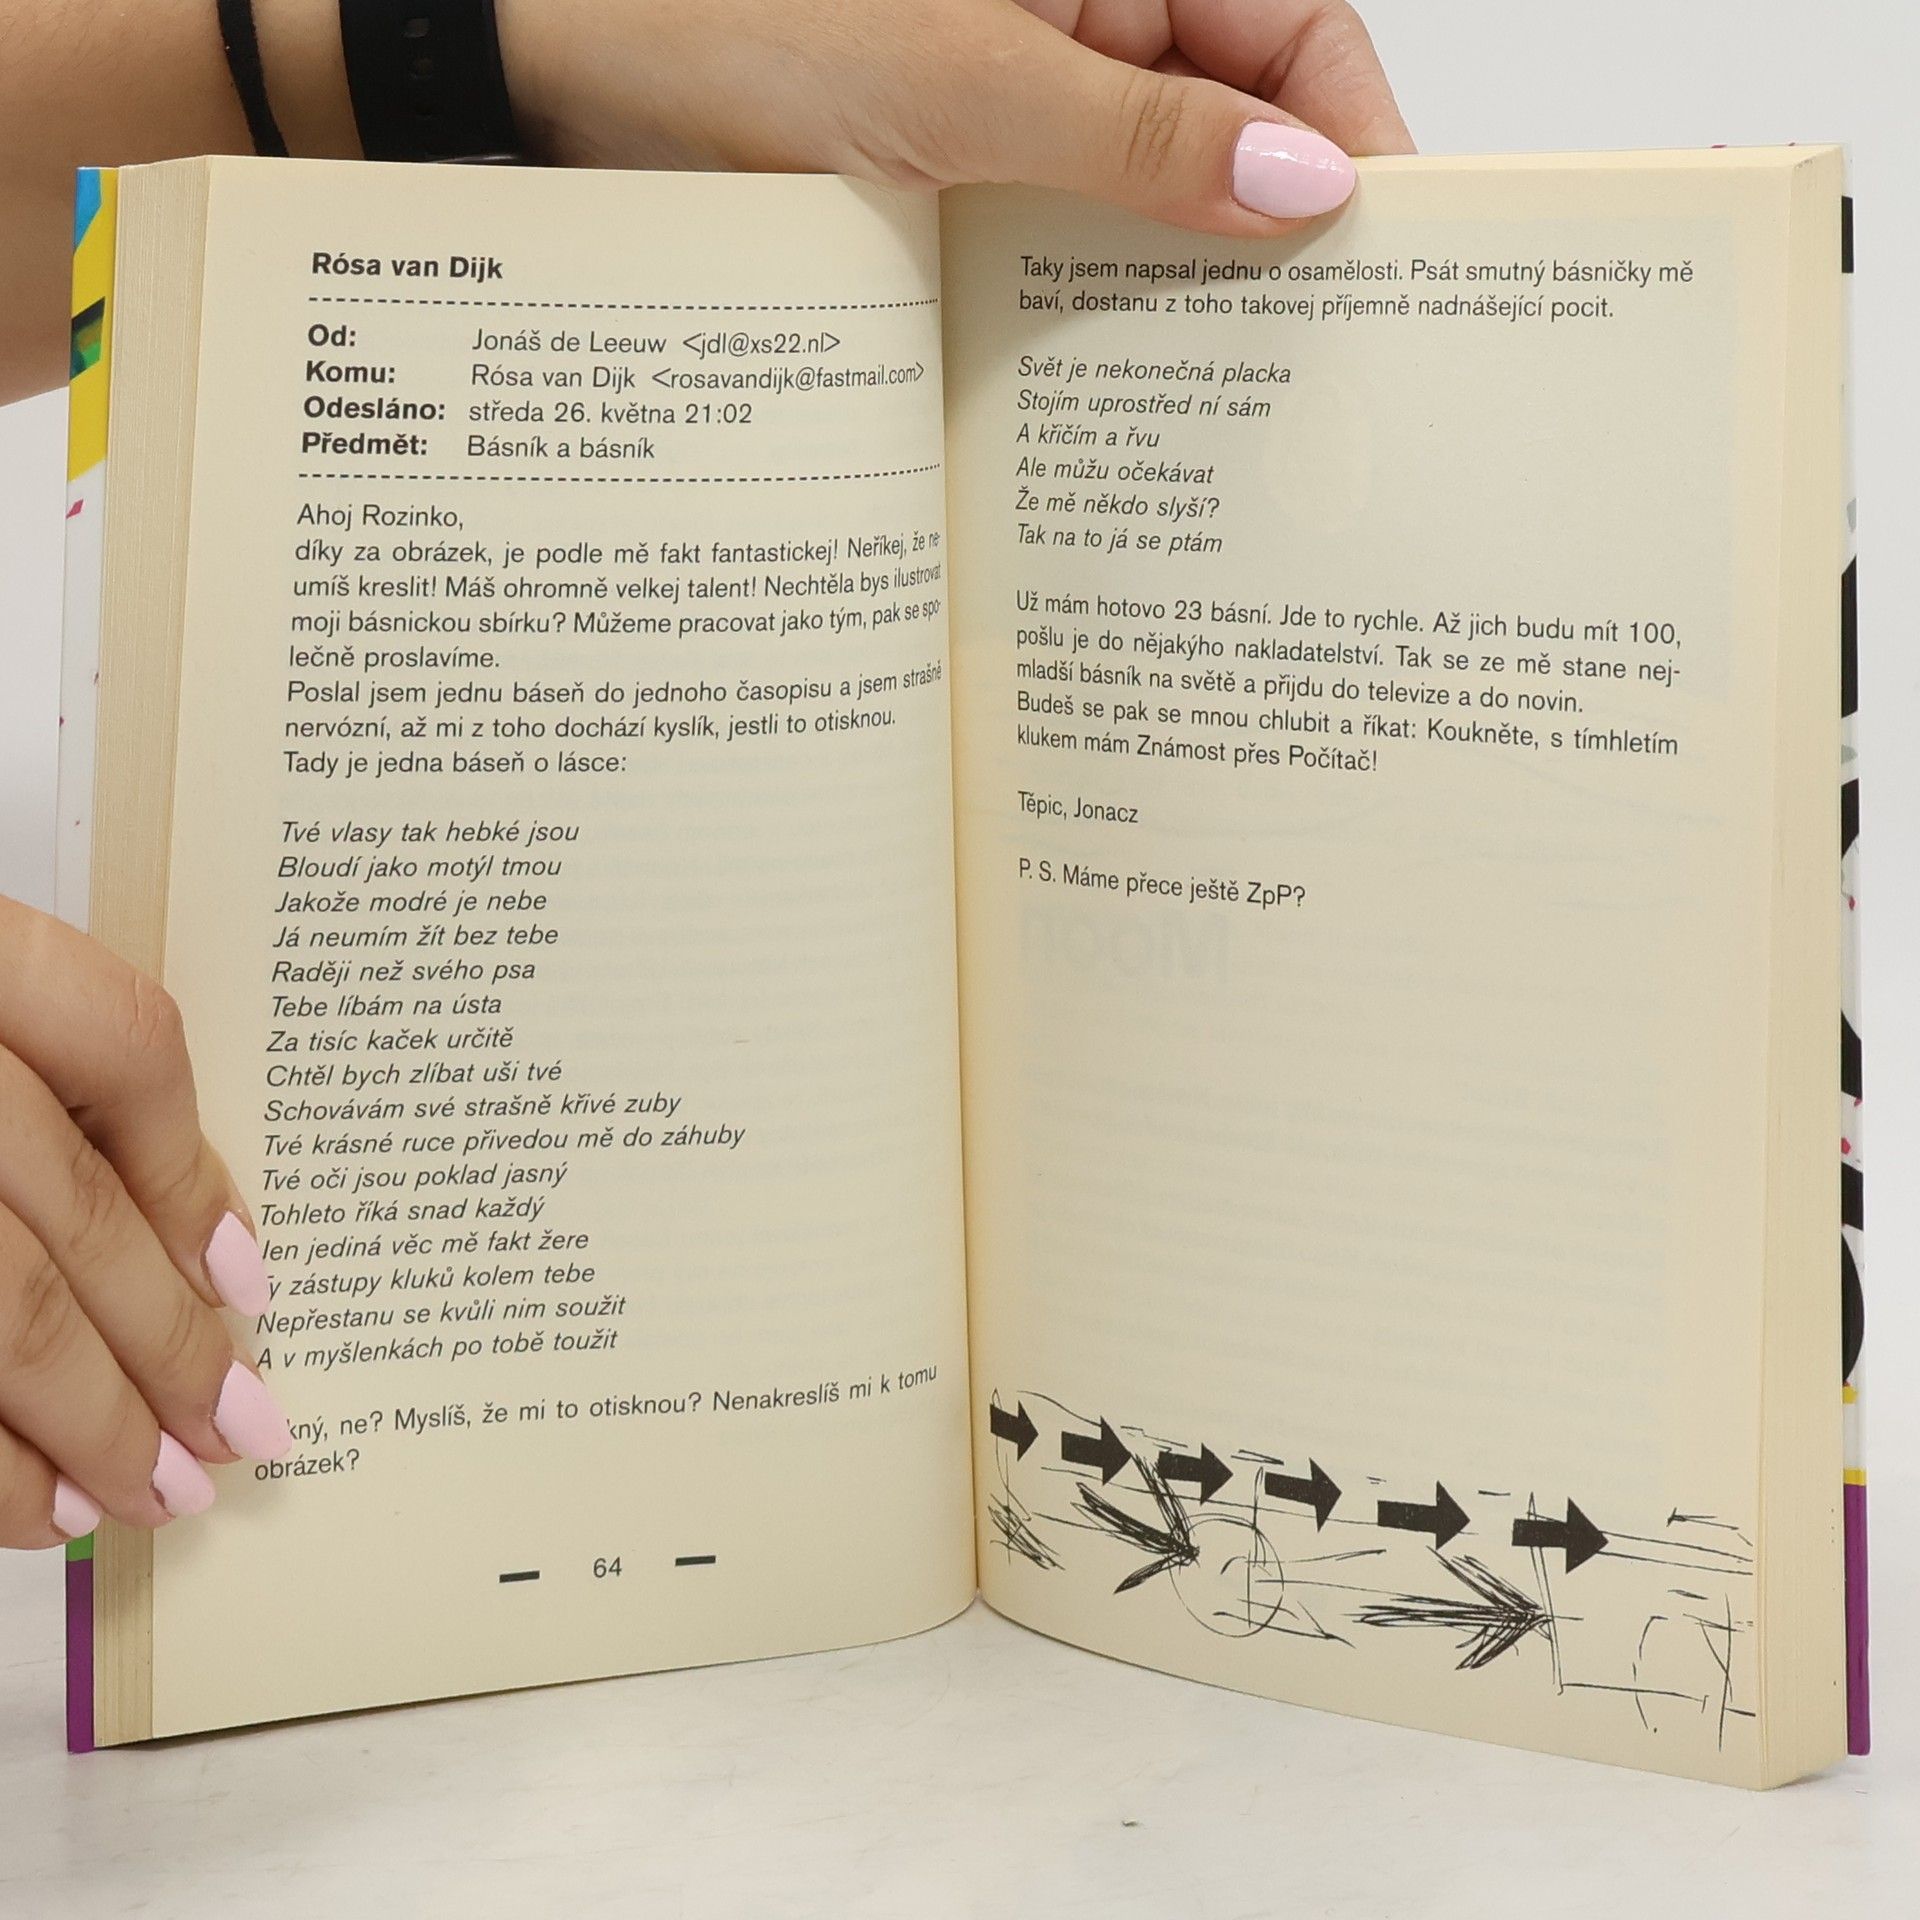 Rósa van Dijk
Od: Jonáš de Leeuw <jdl@xs22.nl>
Komu: Rósa van Dijk <rosavandijk@fastmail.com>
Odesláno: středa 26. května 21:02
Předmět: Básník a básník
Ahoj Rozinko,
díky za obrázek, je podle mě fakt fantastickej! Neříkej, že ne-
umíš kreslit! Máš ohromně velkej talent! Nechtěla bys ilustrovat
moji básnickou sbírku? Můžeme pracovat jako tým, pak se spo-
lečně proslavíme.
Poslal jsem jednu báseň do jednoho časopisu a jsem strašně
nervózní, až mi z toho dochází kyslík, jestli to otisknou.
Tady je jedna báseň o lásce:
Tvé vlasy tak hebké jsou
Bloudí jako motýl tmou
Jakože modré je nebe
Já neumím žít bez tebe
Raději než svého psa
Tebe líbám na ústa
Za tisíc kaček určitě
Chtěl bych zlíbat uši tvé
Schovávám své strašně křivé zuby
Tvé krásné ruce přivedou mě do záhuby
Tvé oči jsou poklad jasný
Tohleto říká snad každý
Jen jediná věc mě fakt žere
Ty zástupy kluků kolem tebe
Nepřestanu se kvůli nim soužit
A v myšlenkách po tobě toužit
kný, ne? Myslíš, že mi to otisknou? Nenakreslíš mi k tomu
obrázek?
64
Taky jsem napsal jednu o osamělosti. Psát smutný básničky mě
baví, dostanu z toho takovej příjemně nadnášející pocit.
Svět je nekonečná placka
Stojím uprostřed ní sám
A křičím a řvu
Ale můžu očekávat
Že mě někdo slyší?
Tak na to já se ptám
Už mám hotovo 23 básní. Jde to rychle. Až jich budu mít 100,
pošlu je do nějakýho nakladatelství. Tak se ze mě stane nej-
mladší básník na světě a přijdu do televize a do novin.
Budeš se pak se mnou chlubit a říkat: Koukněte, s tímhletím
klukem mám Známost přes Počítač!
Těpic, Jonacz
P. S. Máme přece ještě ZpP?